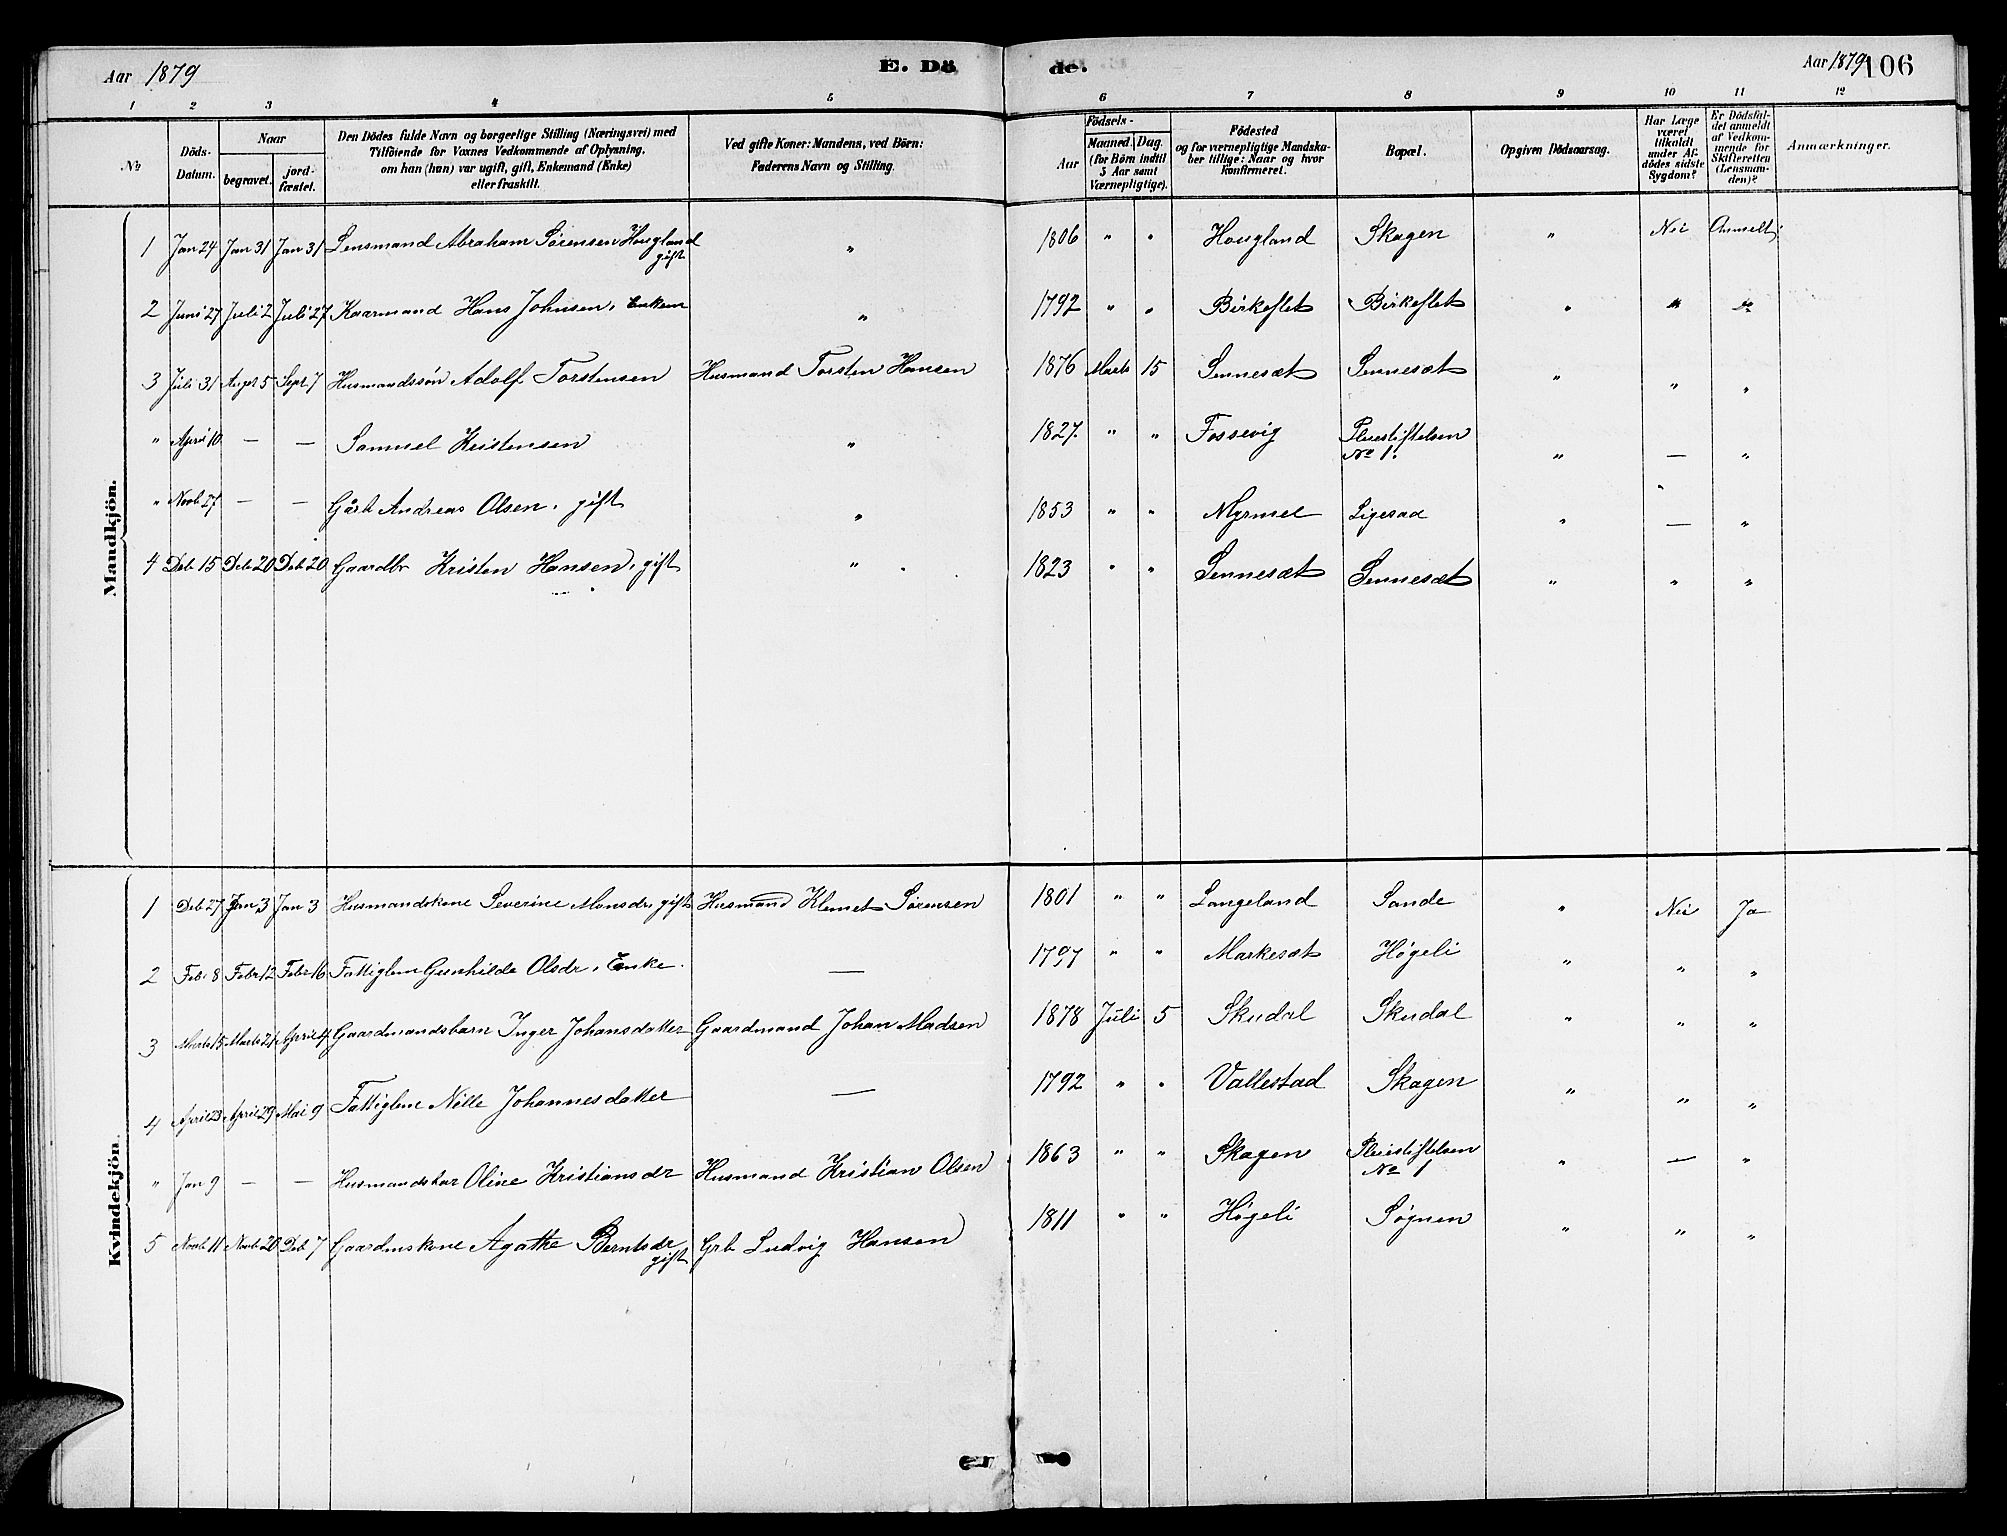 Aar 1879 E. Dö de. Aar 1879 106
1 2 3 4 5 6 7 8 9 10 11 12
No
Döds-Datum.
Naar
begravet.
jordfæstet.
Den Dödes fulde Navn og borgerlige Stilling (Næringsvei) med
Tilföiende for Voxnes Vedkommende af Oplysning.
om han (hun) var ugift, gift, Enkemand (Enke)
eller fraskilt.
Ved gifte Koner: Mandens, ved Börn:
Faderens Navn og Stilling.
Födsels-
Aar
Maaned. Dag.
(for Börn indtil
5 Aar samt
Værnepligtige).
Födested
og for værnepligtige Mandska-
ber tillige: Naar og hvor
konfirmeret.
Bopæl.
Opgiven Dödsaarsag.
Har Læge
været
tilkaldt
under Af-
dödes sidste
Sygdom?
Er Dödsfal-
det anmeldt
af Vedkom-
mende for
Skifteretten
(Lensman-
den)?
Anmærkninger.
Mandkjön.
1 Jan 24 Jan 31 Jan 31 Lensmand Abraham Sørensen Hougland gift " 1806 " " Hougland Skagen " Nei Anmeldt
2 Juni 27 Juli 2 Juli 27 Kaarmand Hans Johnsen, Enkem " 1792 " " Birkeflet Birkeflet " " "
3 Juli 31 Augst 5 Sept 7 Husmandssøn Adolf Torstensen Husmand Torsten Hansen 1876 Marts 15 Sennesæt Sennesæt " " "
" April 10 — — Samuel Kristensen " 1827. " " Fossevig Pleiestiftelsen No 1. " — "
" Novb 27 — — Gårb Andreas Olsen, gift " 1853 " " Myrmel Ligesaa " — "
4 Deb 15 Deb 20 Deb 20 Gaardbr Kristen Hansen, gift " 1823 " " Sennesæt Sennesæt " " "
Kvindekjön.
1 Deb 27 Jan 3 Jan 3 Husmandskone Severine Monsdr, gift Husmand Klemet Sørensen 1801 " " Langeland Sande " Nei Ja
2 Feb 8 Febr 12 Febr 16 Fattiglem Gunhilde Olsdr, Enke. — 1797 " " Markesæt Høgeli " " "
3 Marts 15 Marts 21 April 4 Gaardmandsbarn Inger Johansdatter Gaardmand Johan Madsen 1878 Juli 5 Skudal Skudal " " "
4 April 23 April 29 Mai 9 Fattiglem Nille Johannesdatter — 1792 " " Vallestad Skagen " " "
" Jan 9 — — Oline Kristiansdr Husmand Kristian Olsen 1863 " " Skagen Pleiestiftelsen No 1 " — "
5 Novb 11 Novb 20 Deb 7 Gaardmskone Agathe Berntsdr gift Grb Ludvig Hansen 1811 " " Høgeli Søgnen " " "